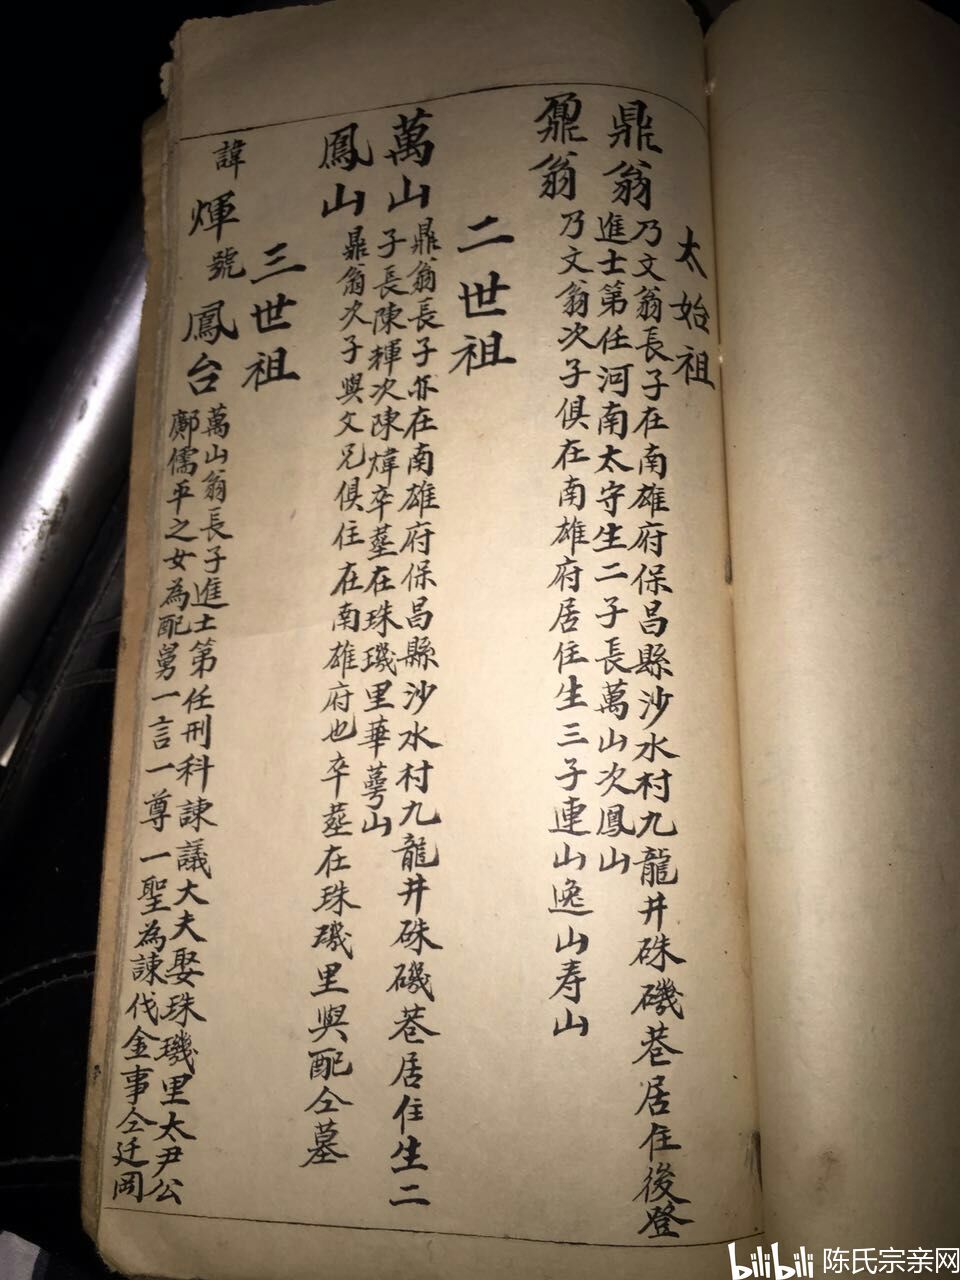 太始祖
鼎翁
乃文翁長子在南雄府保昌縣沙水村九龍井硃磯巷居住後登
進士第任河南太守生二子長萬山次鳳山
鼐翁
乃文翁次子俱在南雄府居住生三子連山逸山寿山
二世祖
萬山
鼎翁長子亦在南雄府保昌縣沙水村九龍井硃磯巷居住生二
子長陳輝次陳煒卒塟在珠璣里華蕚山
鳳山
鼎翁次子與文兄俱住在南雄府也卒塟在珠磯里與配仝墓
三世祖
諱煇號鳳台
萬山翁長子進士第任刑科諫議大夫娶珠璣里太尹公
鄺儒平之女為配舅一言一尊一聖為諫伐金事仝迁岡
bilibili 陈氏宗亲网